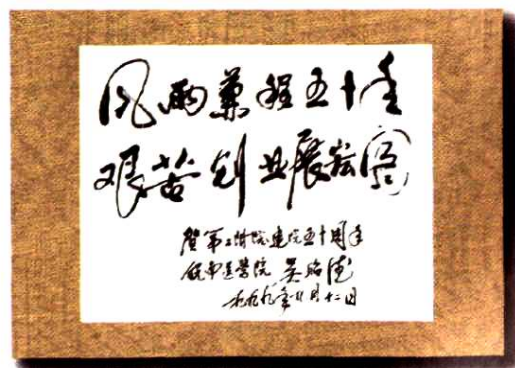 风雨兼程五十年
艰苦创业展宏图
贺第二附院建院五十周年
医学院 吴
一九九九年 月十二日